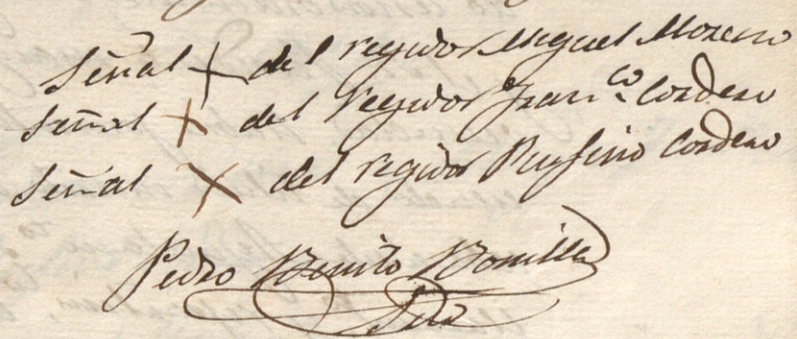 Señal + del regidor Miguel Moreno
Señal + del regidor Fran.co Cordero
Señal X del regidor Rufino Cordero
Pedro Benito Bonilla